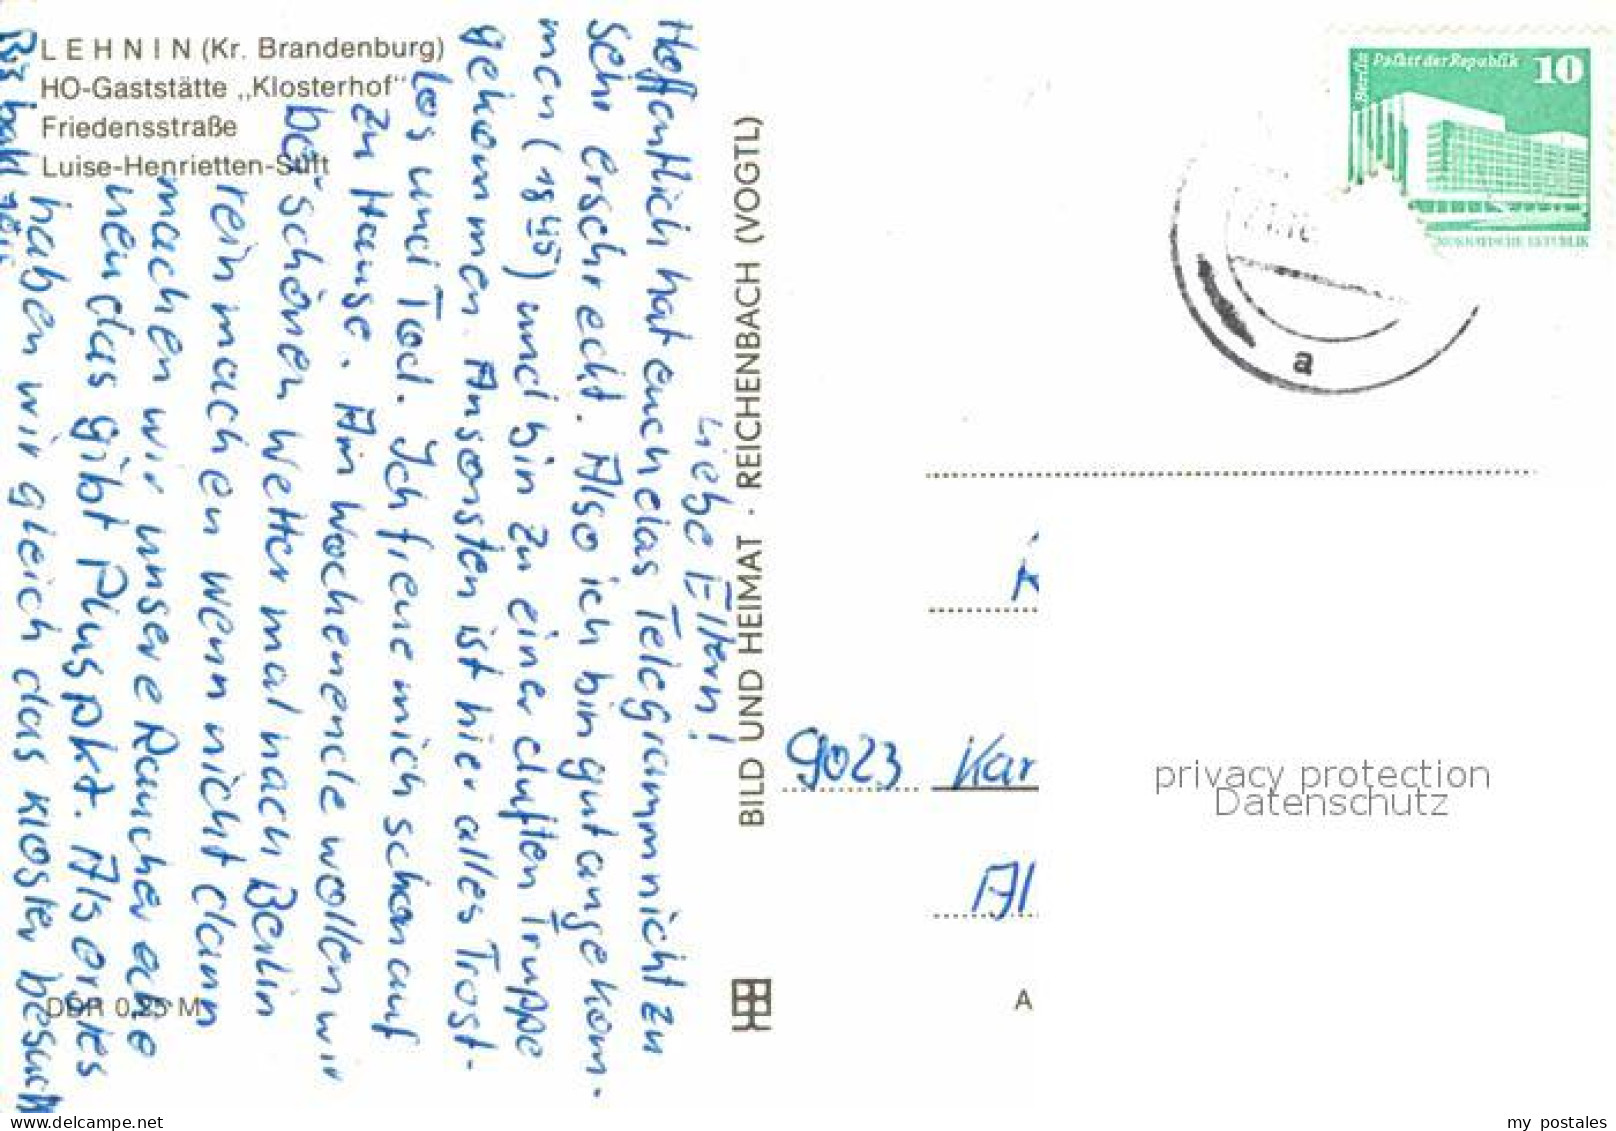 LEHNIN (Kr. Brandenburg)
HO-Gaststätte „Klosterhof"
Friedensstraße
Luise-Henrietten-Stift
Liebe Eltern!
Hoffentlich hat euch das Telegramm nicht zu
sehr erschreckt. Also ich bin gut angekom-
men (18 45) und bin zu einer duften Truppe
gekommen. Ansonsten ist hier alles Trost-
los und Tod. Ich freue mich schon auf
zu Hause. Am Wochenende wollen wir
bei schönen Wetter mal nach Berlin
rein machen wenn nicht dann
machen wir unsere Raucherecke
neu das gibt Pluspkt. Als erstes
haben wir gleich das Kloster besucht
Bis bald
DDR 0,25 M
BILD UND HEIMAT · REICHENBACH (VOGTL)
Berlin
Palast der Republik
10
a
9023 Kar
Al
A
privacy protection
Datenschutz
delcampe.net
my postales